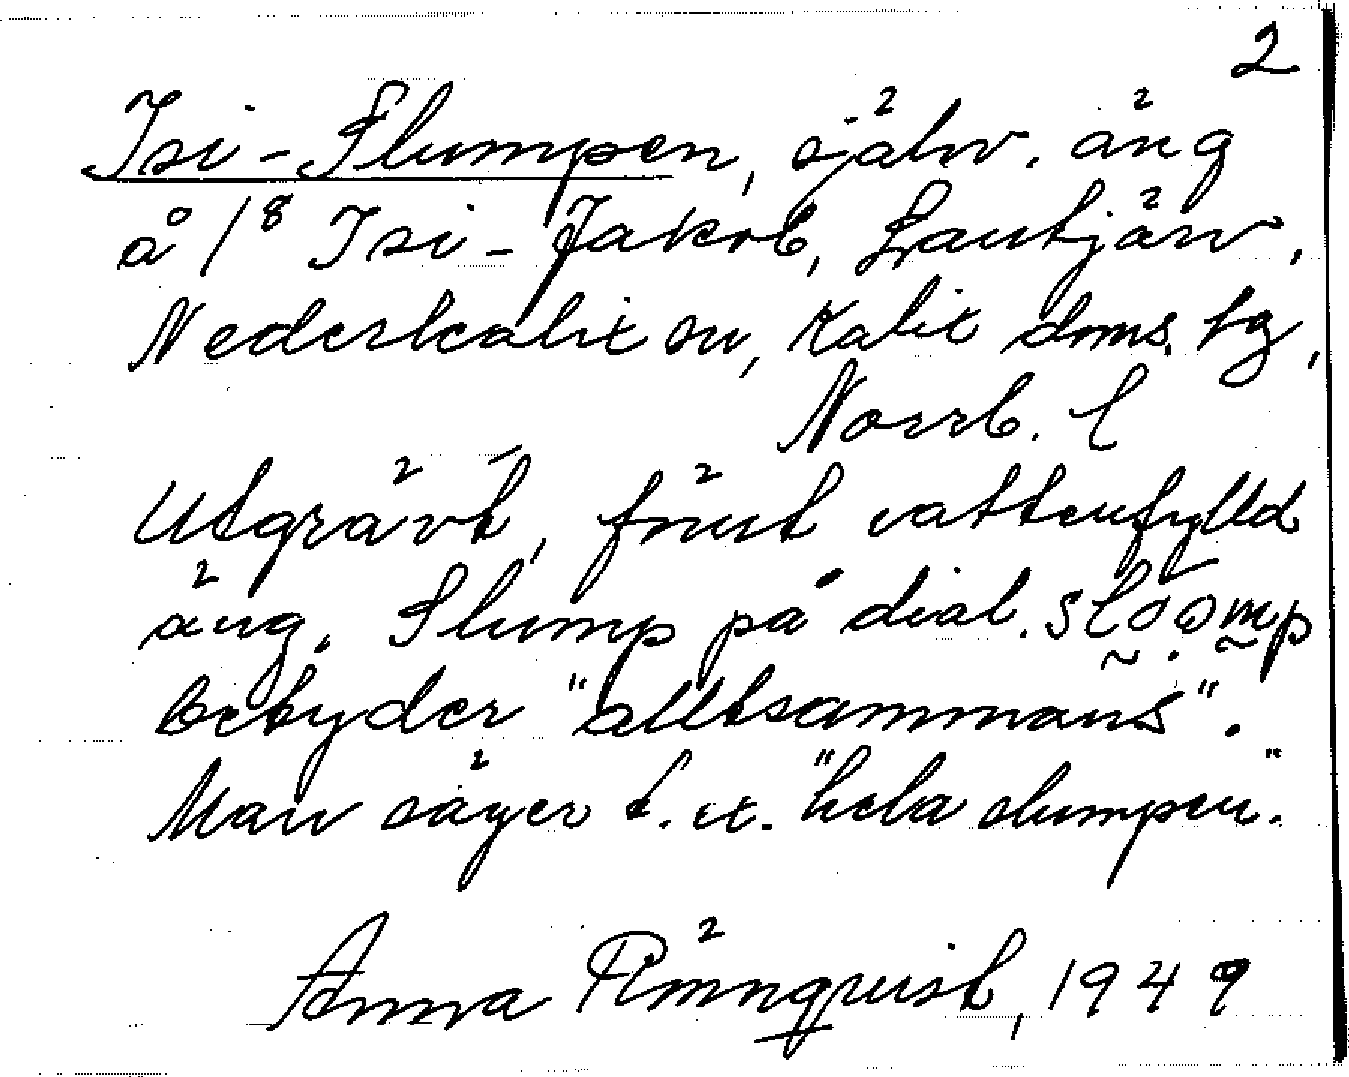 2
Isi-Slumpen, självv. äng
å 1⁸ Isi-Jakob, Lantjärv,
Nederkalix sn, Kalix doms. tg,
Norrb. l
Utgrävt, förut vattenfylld
äng. Slump på dial.
betyder "alltsammans".
Man säger t. ex. "hela slumpen."
Anna Rönnquist, 1949